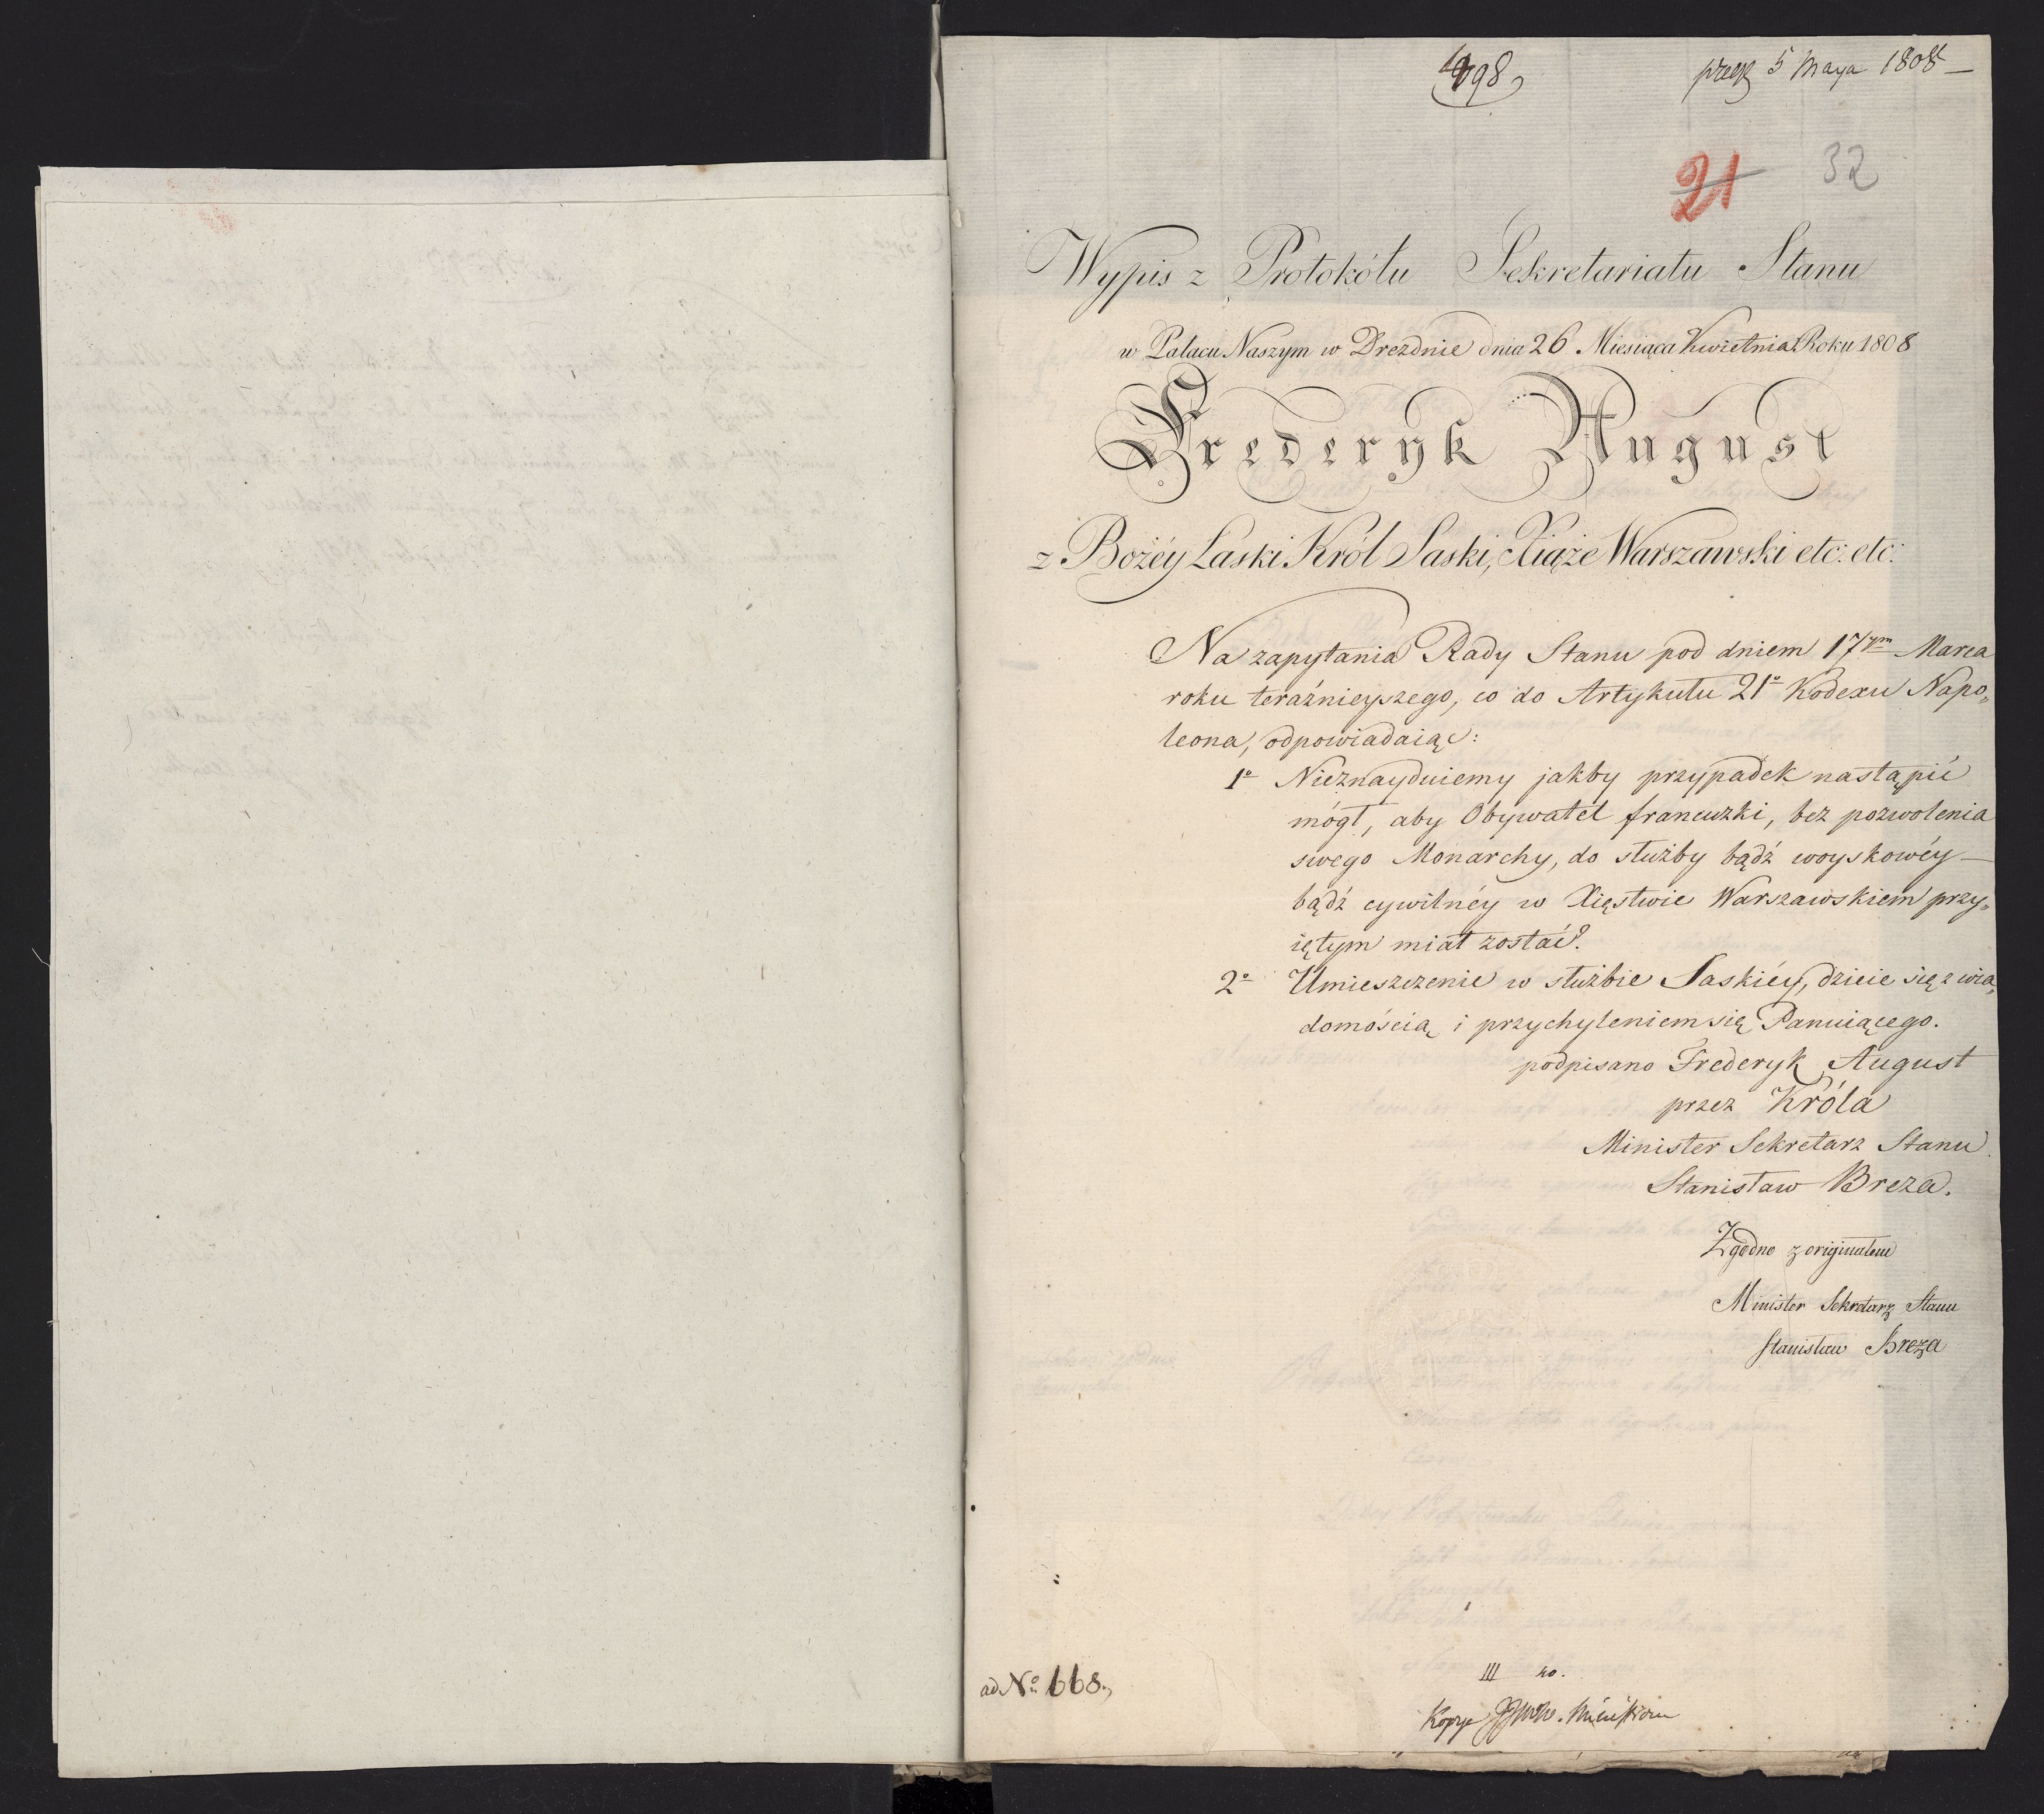 1098
5 Maya 1808
21 32
Wypis z Protokółu Sekretariatu Stanu
w Pałacu Naszym w Dreznie dnia 26 Miesiąca Kwietnia Roku 1808
Frederyk August
z Bożéy Łaski Król Saski, Xiąże Warszawski etc: etc:
Na zapytania Rady Stanu pod dniem 17ym Marca
roku teraźnieyszego, co do Artykułu 21o Kodexu Napo„
leona, odpowiadaiąc:
1o Nieznayduiemy jakby przypadek nastąpić
mógł, aby Obywatel francuzki, bez pozwolenia
swego Monarchy, do służby bądź woyskowéy
bądź cywilnéy w Xięstwie Warszawskiem przy„
iętym miał zostać?
2o Umieszczenie w służbie Saskiéy, dzieie się z wia„
domością i przychyleniem się Panuiącego.
podpisano Frederyk August
przez Króla
Minister Sekretarz Stanu
Stanisław Breza.
Zgodno z originałem
Minister Sekretarz Stanu
Stanisław Breza
ad No 668.
III
Kopye Ministrom